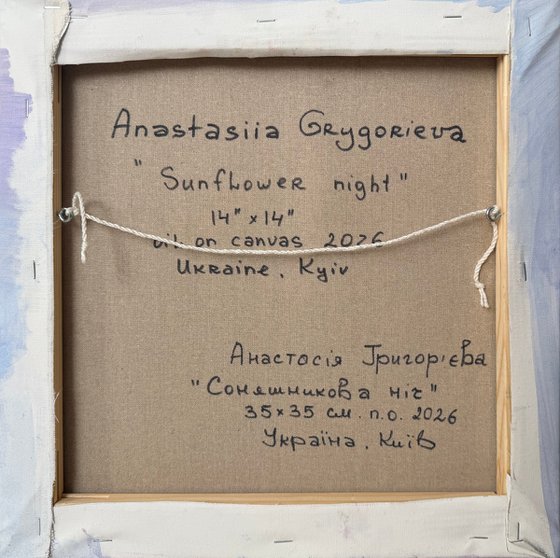 Anastasiia Grygorieva
"Sunflower night"
14" x 14"
oil on canvas 2026
Ukraine, Kyiv
Анастасія Григор'єва
"Соняшникова ніч"
35x35 см. п.о. 2026
Україна, Київ